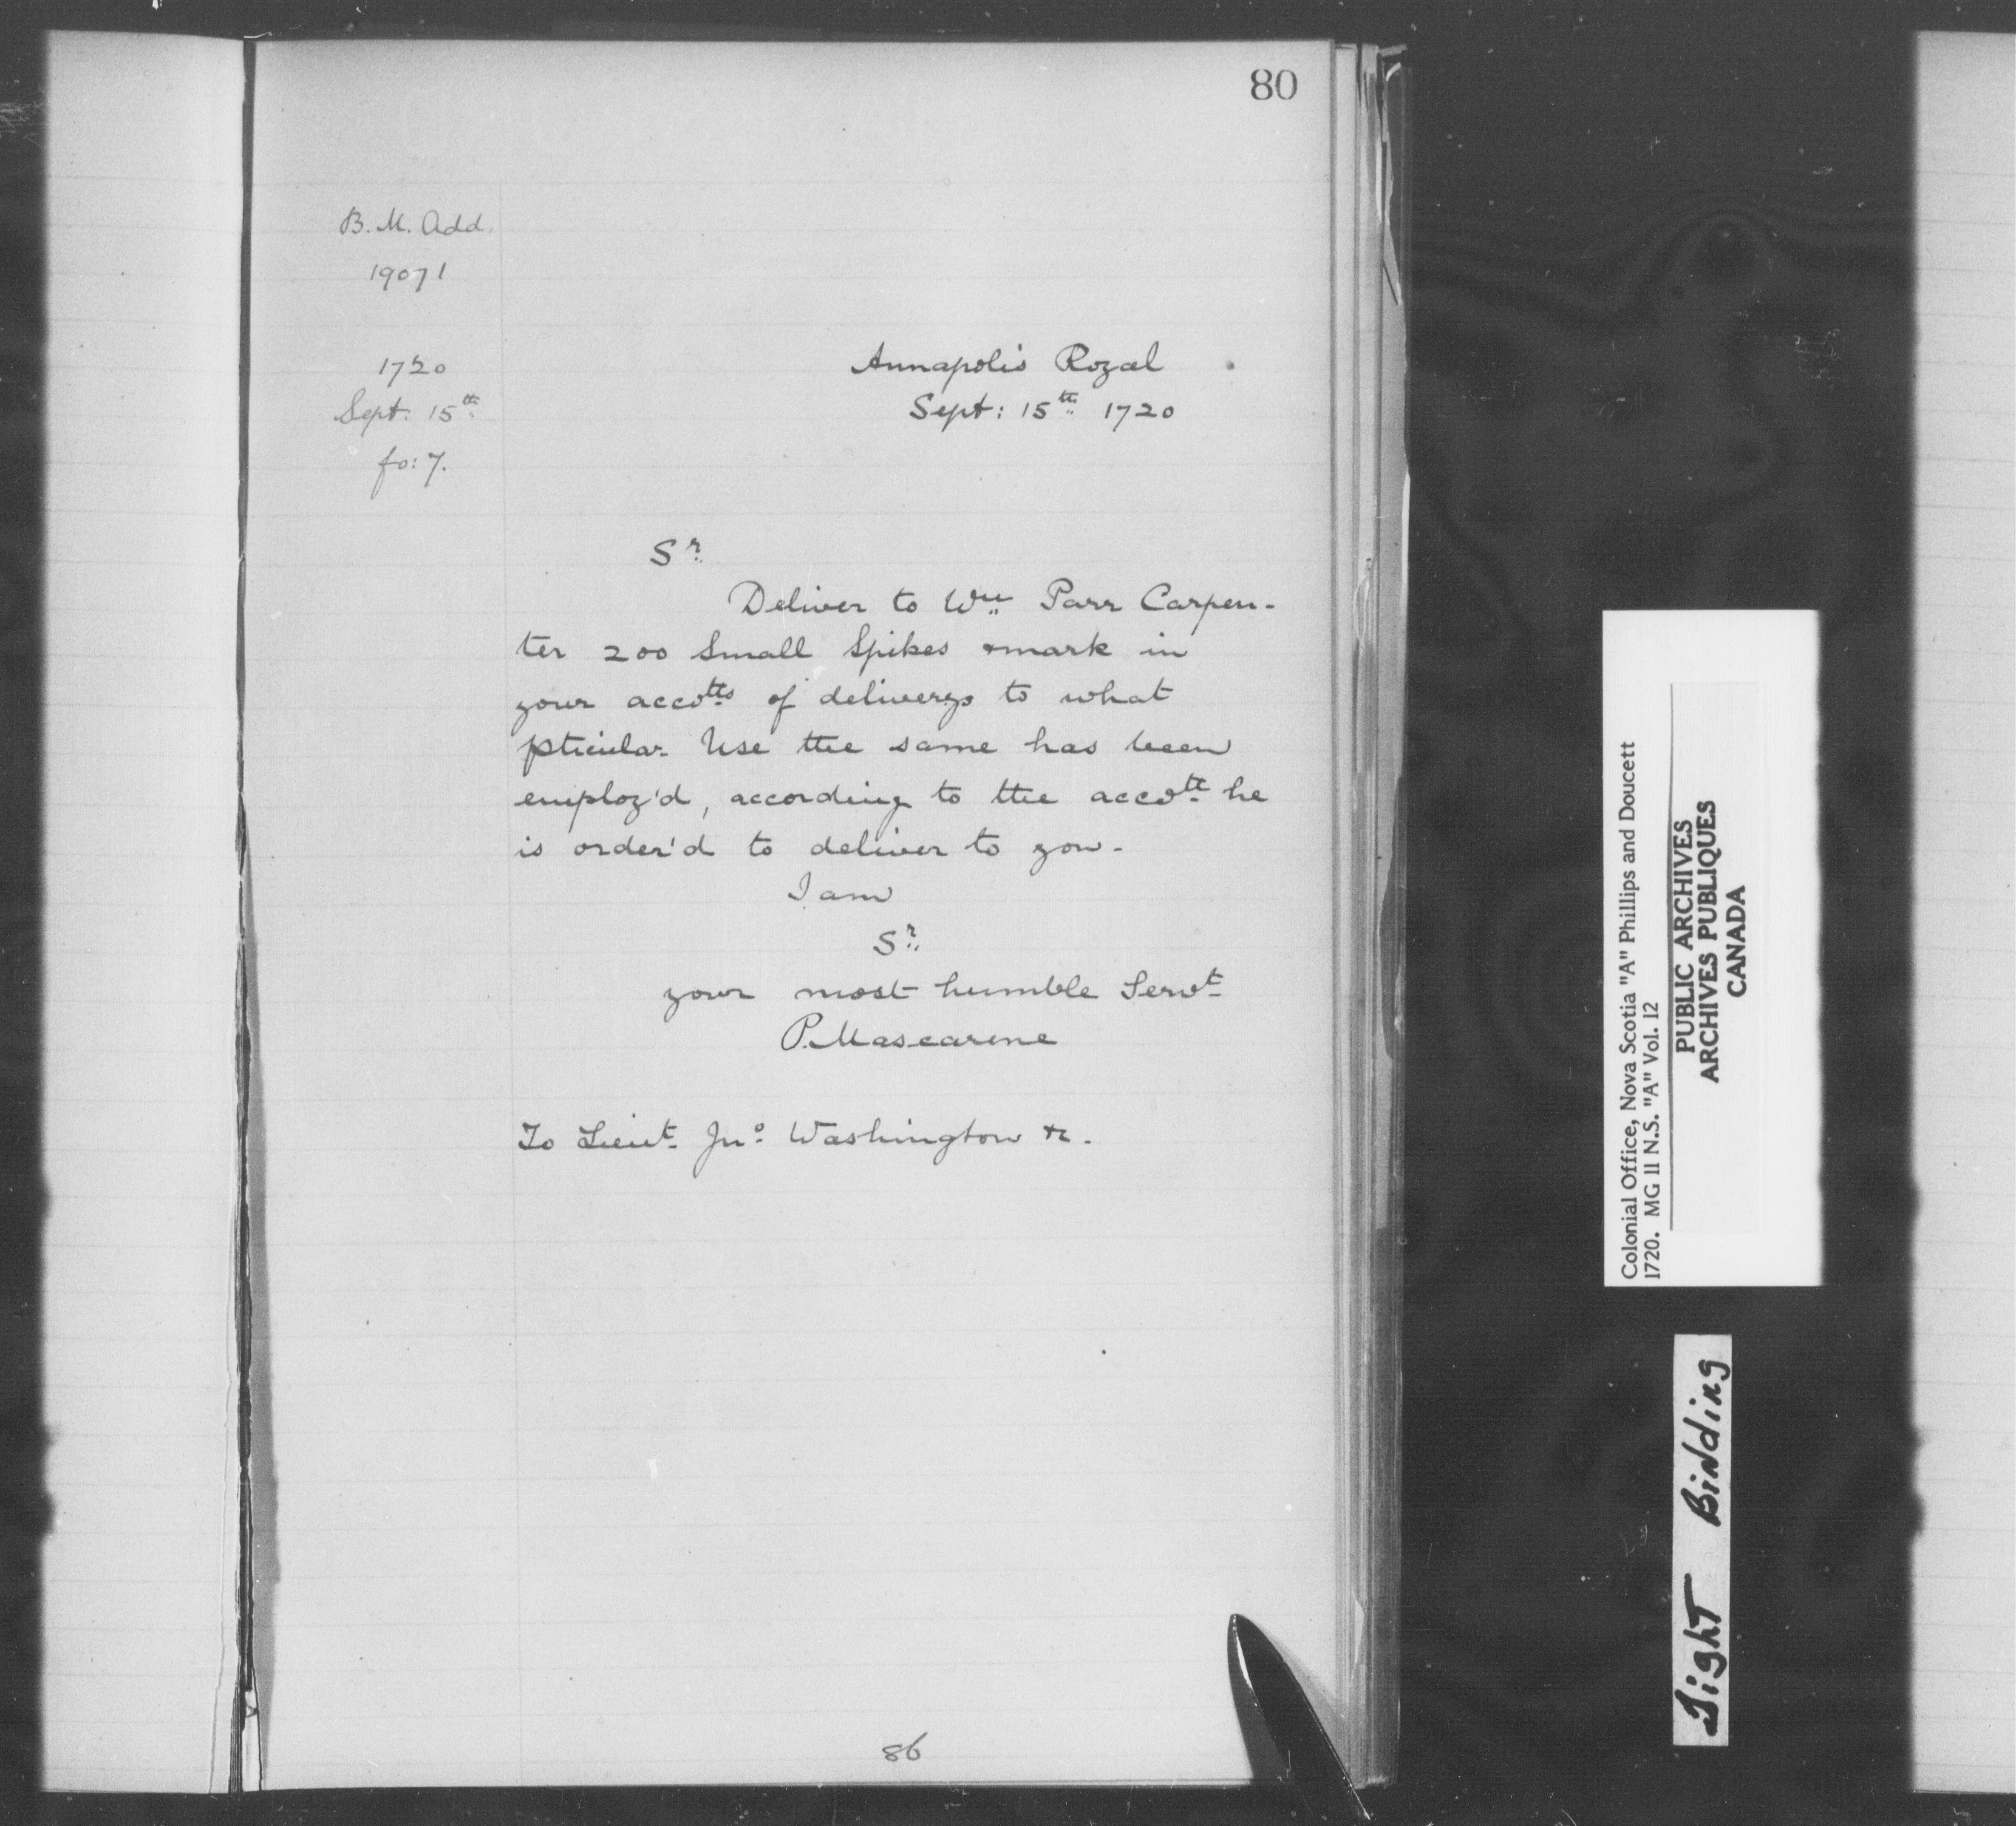 80
B. M. Add.
19071
1720
Sept: 15th
fo: 7.
Annapolis Royal
Sept: 15th 1720
Sr
Deliver to Wm Parr Carpen-
ter 200 Small Spikes & mark in
your accotts of deliverys to what
pticular Use the same has been
employ'd, according to the accott he
is order'd to deliver to you.
I am
Sr
your most humble Servt
P. Mascarene
To Lieut Jno Washington &c.
86
Colonial Office, Nova Scotia "A" Phillips and Doucett
1720. MG 11 N.S. "A" Vol. 12
PUBLIC ARCHIVES
ARCHIVES PUBLIQUES
CANADA
Tight Binding